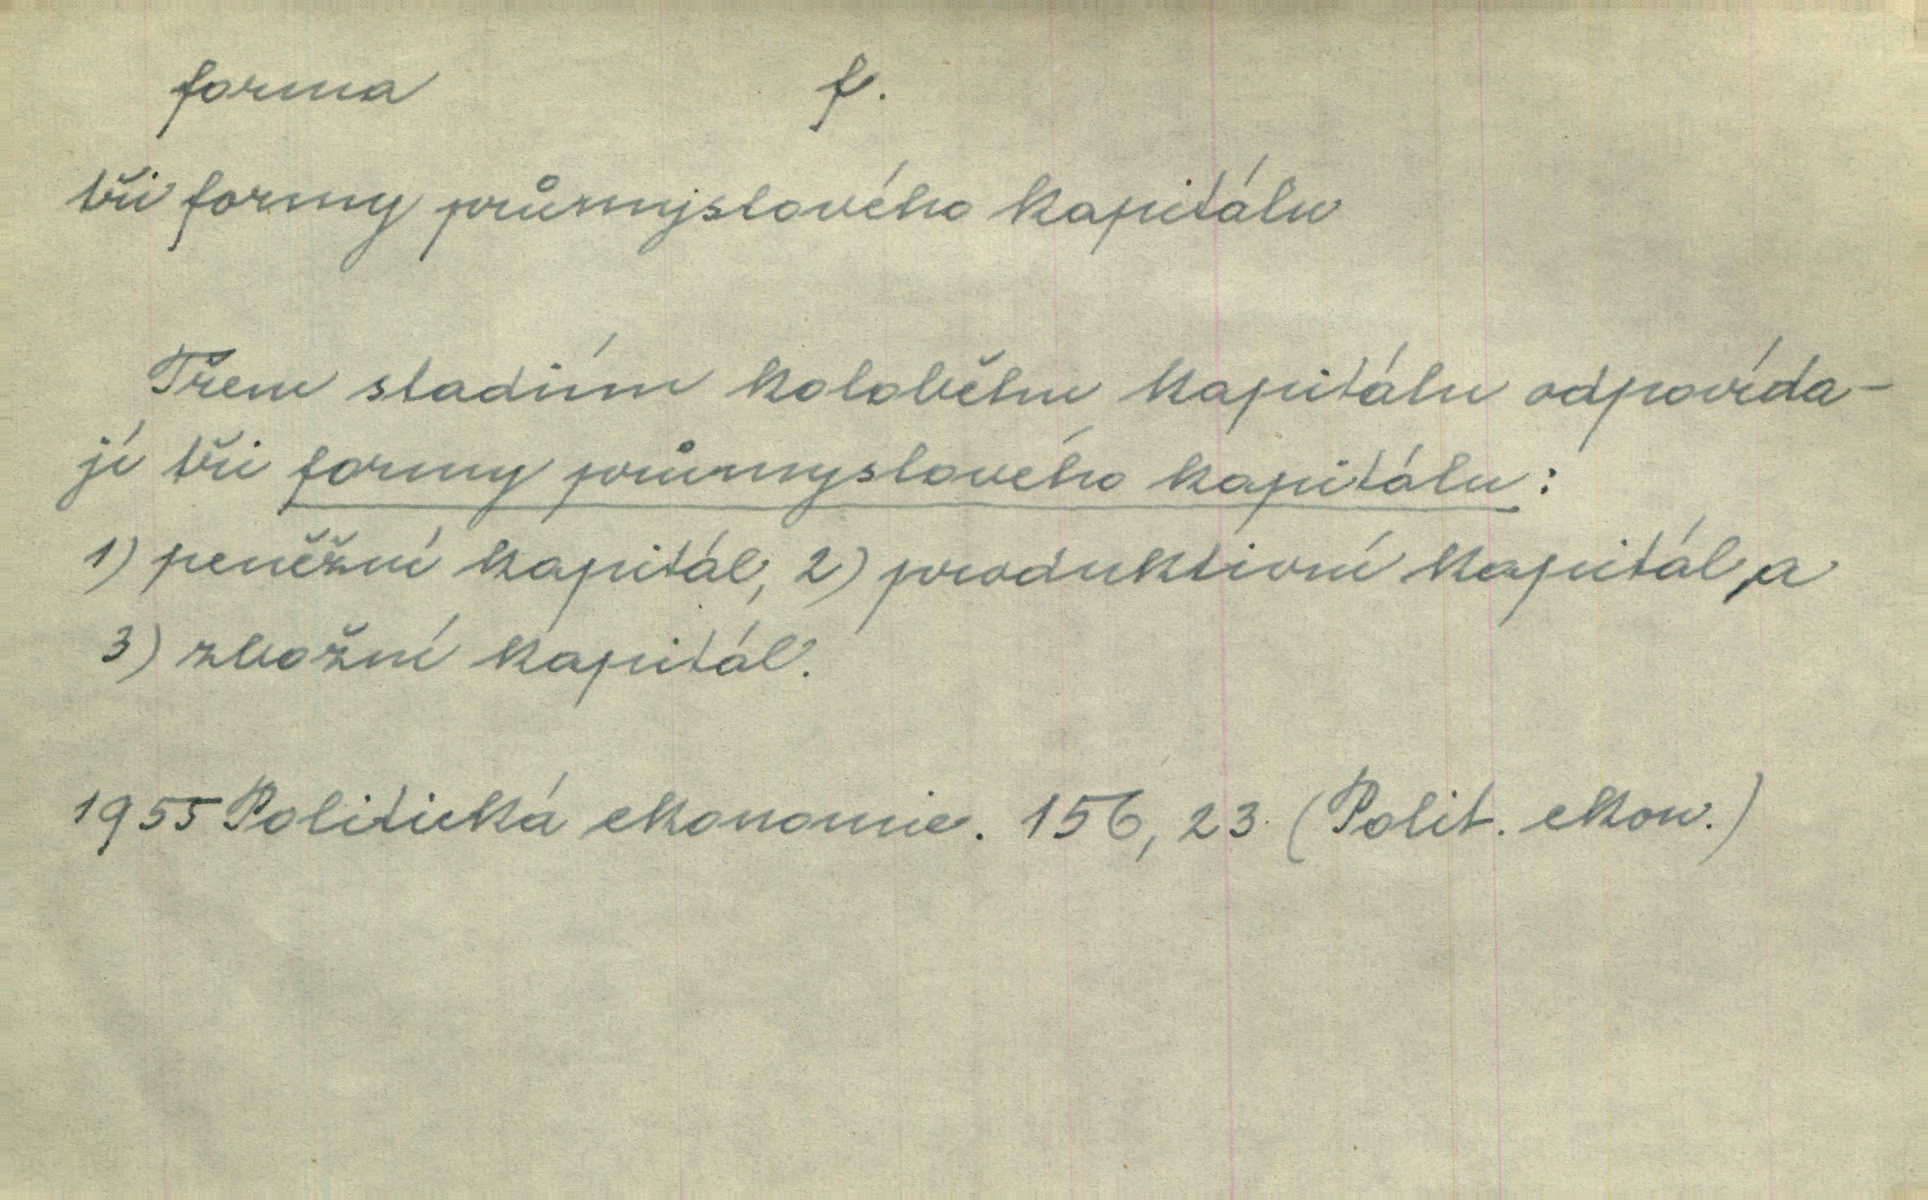 forma f.
tři formy průmyslového kapitálu
Třem stadiím koloběhu kapitálu odpovída-
jí tři formy průmyslového kapitálu:
1) peněžní kapitál, 2) produktivní kapitál, a
3) zbožní kapitál.
1955 Politická ekonomie. 156, 23 (Polit. ekon.)